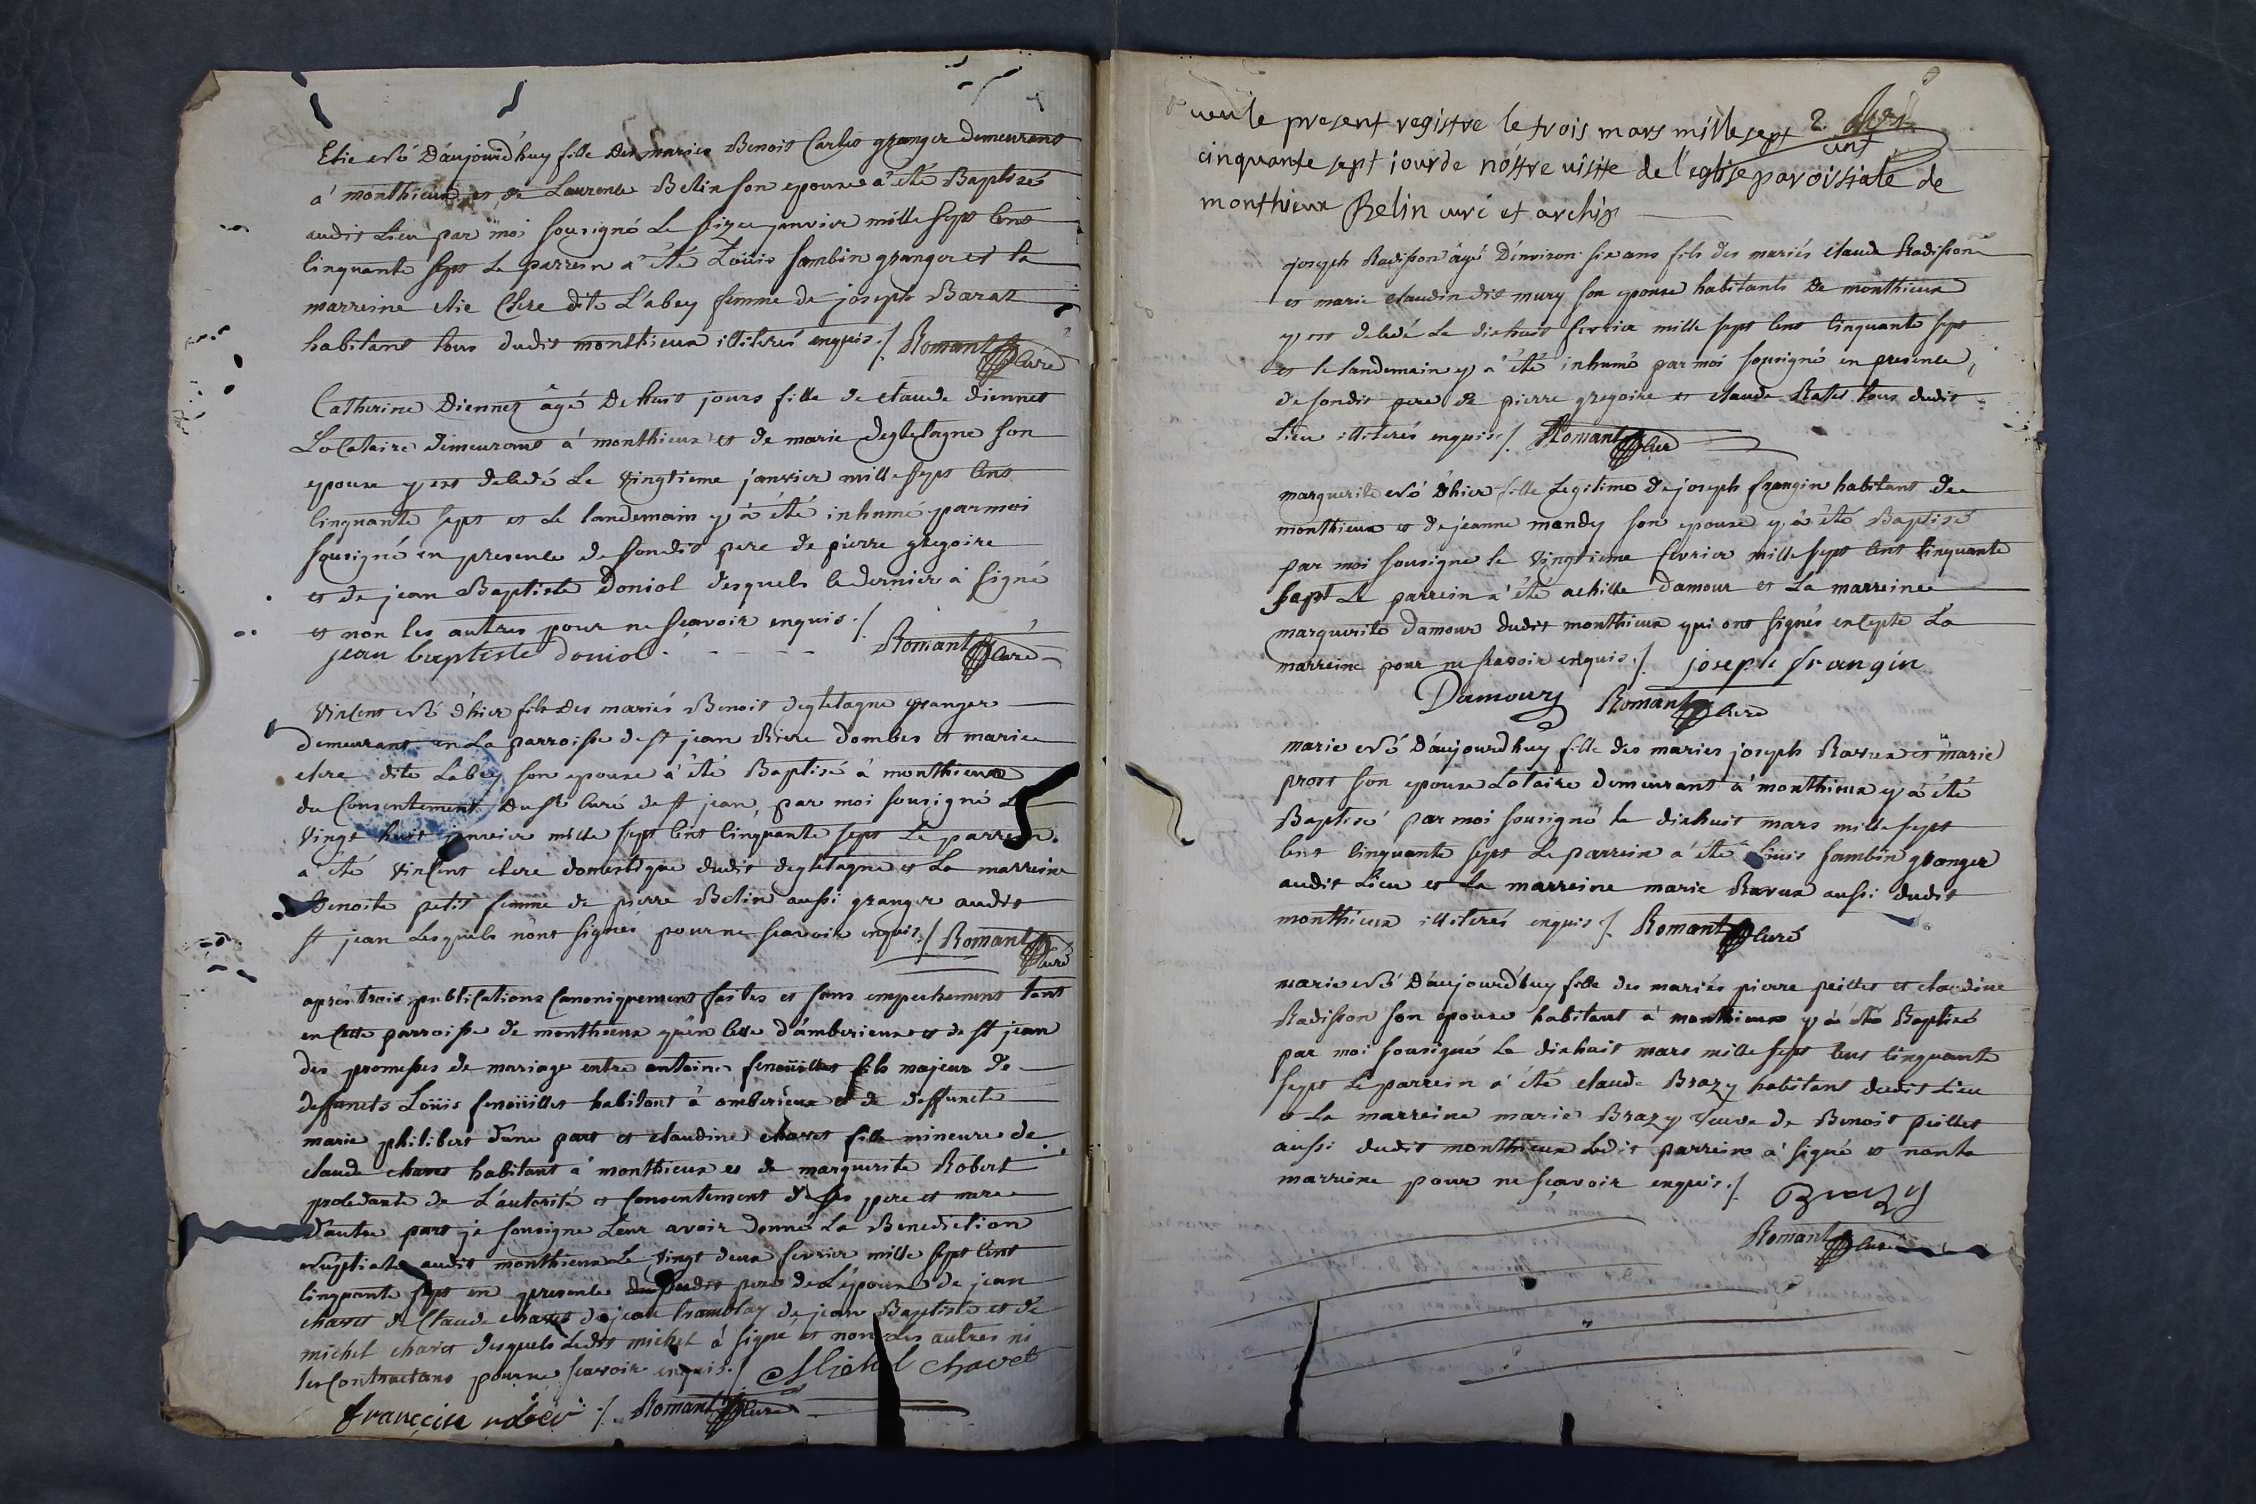 Etie Né D'aujourd'huy fille des maries Benoit Carles granger demeurant
a monthieux et de Laurence Belin son epouse a été Baptisé
audit Lieu par moi sousigné Le seize janvier mille sept Cens
Cinquante sept Le parrein a été Loüis sambin granger et la
marreine etie Clere dite L'abey femme de joseph Barat
habitans tous dudit monthieux illiterés enquis ./. Romant Curé
Catherine Diennet âgé De huit jours fille de claude diennet
LoCataire demeurant à monthieux et de marie degletagne son
epouse y est decedé Le vingtieme janvier mille sept Cens
Cinquante sept et Le landemain y a été inhumé par moi
sousigné en presence de sondit pere de pierre gregoire
et de jean Baptiste Doniol desquels le dernier a signé
et non les autres pour ne sçavoir enquis ./.
jean baptiste doniol Romant Curé
Vincent Né d'hier fils des mariés Benoit degletagne granger
demeurant en La parroisse de st jean Dombes et marie
clere dite Labey son epouse a été Baptisé à monthieux
du Consentement du sr Curé de st jean, par moi sousigné Le
vingt huit janvier mille sept Cens Cinquante sept Le parrein
a été Vincent clere domestique dudit degletagne et La marreine
Benoite petit femme de pierre Belin aussi granger audit
st jean Lesquels n'ont signés pour ne scavoir enquis ./. Romant Curé
aprés trois publications Canoniquement faites et sans empechement tant
en Cette parroisse de monthieux qu'en Celle d'amberieux et de st jean
des promesses de mariage entre antoine fenoüillet fils majeur de
deffuncts Loüis fenoüillet habitant à amberieux et de deffuncte
marie philibert d'une part et claudine chavet fille mineure de
claude chavet habitant à monthieux et de marguerite Robert
procedante de L'autorité et Consentement de ses pere et mere
d'autre part je sousigne Leur avoir donné La Benediction
Nuptiale audit monthieux Le vingt deux fevrier mille sept Cens
Cinquante sept en presence dudit pere de L'epouse de jean
chavet de Claude chavet de jean tramblay de jean Baptiste et de
michel chavet desquels Ledit michel à signé et non Les autres ni
les Contractans pour ne scavoir enquis ./. Michel Chavet
françois ./. Romant Curé
2.
veu le present registre le trois mars mille sept cent
cinquante sept jour de nôttre visitte de l'eglise paroissiale de
monthieux Belin curé et archip
joseph Radisson âgé D'environ six ans fils des mariés claude Radisson
et marie claudin dit mury son epouse habitants de monthieux
y est decedé Le dixhuit fevrier mille sept Cens Cinquante sept
et le landemain y a été inhumé par moi sousigné en presence
de sondit pere de pierre gregoire et claude Ratet tous dudit
Lieu illiterés enquis ./. Romant Curé
marguerite Né d'hier fille Legitime de joseph frangin habitant de
monthieux et de jeanne mandy son epouse y a été Baptisé
par moi sousigne le vingtieme fevrier mille sept Cens Cinquante
sept Le parrein a été achille damour et La marreine
marguerite damour dudit monthieux qui ont signés excepté La
marreine pour ne scavoir enquis ./. joseph frangin
Damoury Romant Curé
marie Né D'aujourd'huy fille des maries joseph Ravux et marie
prost son epouse Locataire demeurant à monthieux y a été
Baptisé par moi sousigné le dixhuit mars mille sept
Cens Cinquante sept Le parrein a été Loüis sambin granger
audit Lieu et La marreine marie Ravux aussi dudit
monthieux illiterés enquis ./. Romant Curé
marie Né D'aujourd'huy fille des mariés pierre peillet et claudine
Radisson son epouse habitant à monthieux y a été Baptisé
par moi sousigné Le dixhuit mars mille sept Cens Cinquante
sept Le parrein a été claude Brazy habitant dudit Lieu
et La marreine marie Brazy veuve de Benoit peillet
aussi dudit monthieux Ledit parrein à signé et non La
marreine pour ne sçavoir enquis ./. Brazy
Romant Curé